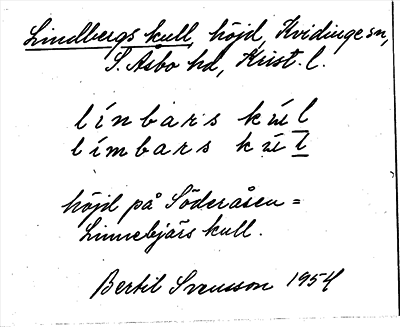 Lindbergs kull, höjd, Kvidinge sn,
S. Åsbo hd, Krist. l.
línbars kúl
límbars kúl
höjd på Söderåsen =
Linnebjärs kull.
Bertil Svensson 1954